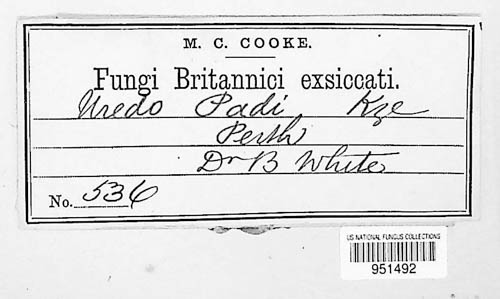 M. C. COOKE.
Fungi Britannici exsiccati.
Uredo Padi Kze
Perth
Dr B White
No. 536
US NATIONAL FUNGUS COLLECTIONS
951492